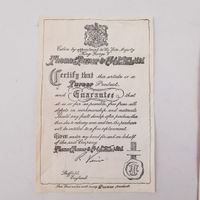 Cutlers by appointment to His Late Majesty
King George V
Thomas Turner & Co.
Certify that this article is a
Turner Product,
and Guarantee that
it is as far as possible, free from all
defects in workmanship and materials
Should any fault develop after purchase then
this due to ordinary wear and tear, the purchaser
will be entitled to a free replacement.
Given under my hand for and on behalf
of the said Company
Thomas Turner & Co.
Sheffield
England